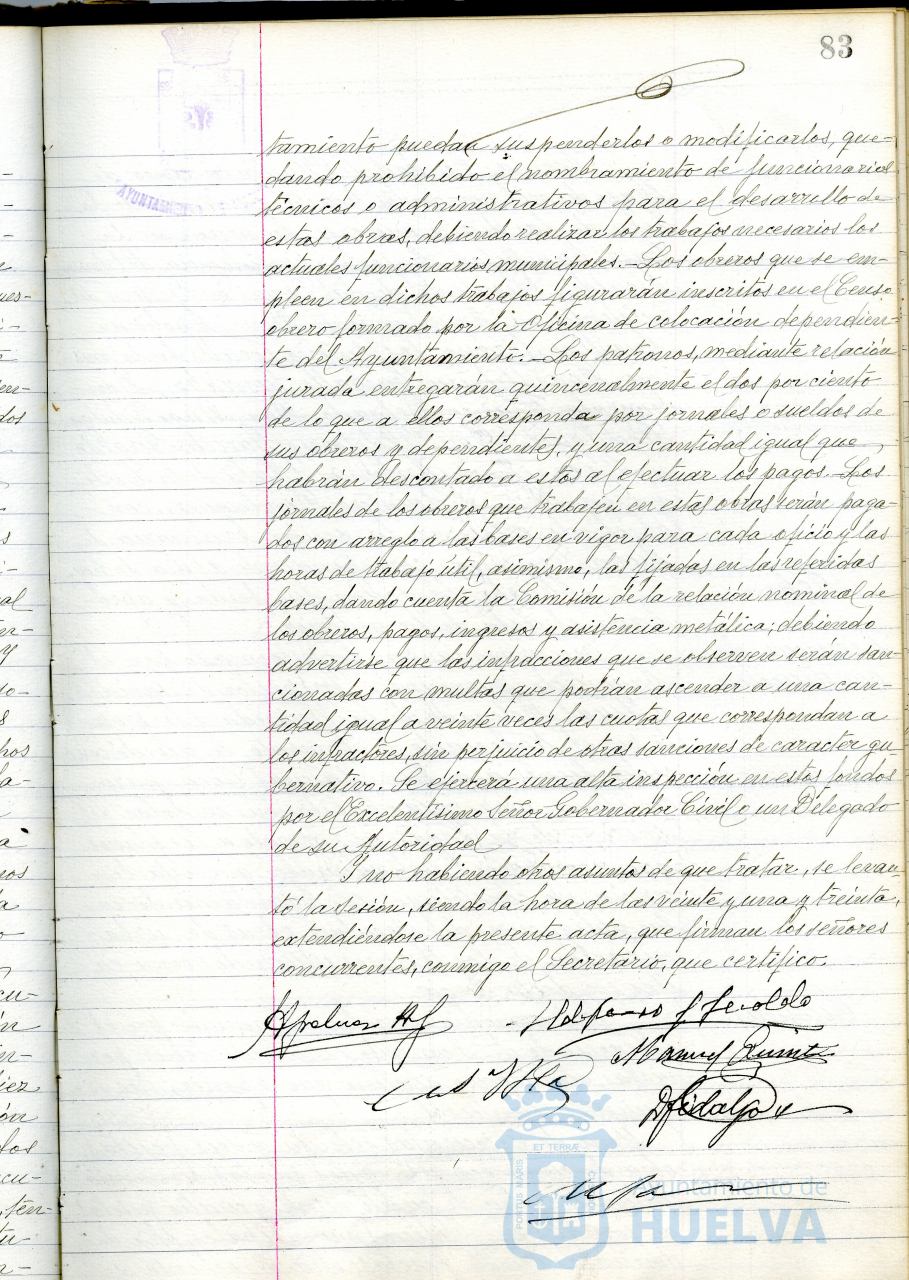 83
tamiento puedan suspenderlos o modificarlos, que-
dando prohibido el nombramiento de funcionarios
técnicos o administrativos para el desarrollo de
estas obras, debiendo realizar los trabajos necesarios los
actuales funcionarios municipales.- Los obreros que se em-
pleen en dichos trabajos figurarán inscritos en el Censo
obrero formado por la Oficina de colocación dependien-
te del Ayuntamiento.- Los patronos, mediante relación
jurada entregarán quincenalmente el dos por ciento
de lo que a ellos corresponda por jornales o sueldos de
sus obreros y dependientes, y una cantidad igual que
habrán descontado a estos al efectuar los pagos.- Los
jornales de los obreros que trabajen en estas obras serán paga-
dos con arreglo a las bases en vigor para cada oficio y las
horas de trabajo útil, asimismo, las fijadas en las referidas
bases, dando cuenta la Comisión de la relación nominal de
los obreros, pagos, ingresos y asistencia metálica; debiendo
advertirse que las infracciones que se observen serán san-
cionadas con multas que podrán ascender a una can-
tidad igual a veinte veces las cuotas que correspondan a
los infractores, sin perjuicio de otras sanciones de caracter gu-
bernativo. Se ejercerá una alta inspección en estos fondos
por el Excelentísimo Señor Gobernador Civil o un Delegado
de su Autoridad
Y no habiendo otros asuntos de que tratar, se levan-
tó la sesión, siendo la hora de las veinte y una y treinta,
extendiéndose la presente acta, que firman los señores
concurrentes, conmigo el Secretario, que certifico.
Manuel
D Fidalgo
ET TERRÆ
PORTUS MARIS
Ayuntamiento de
HUELVA